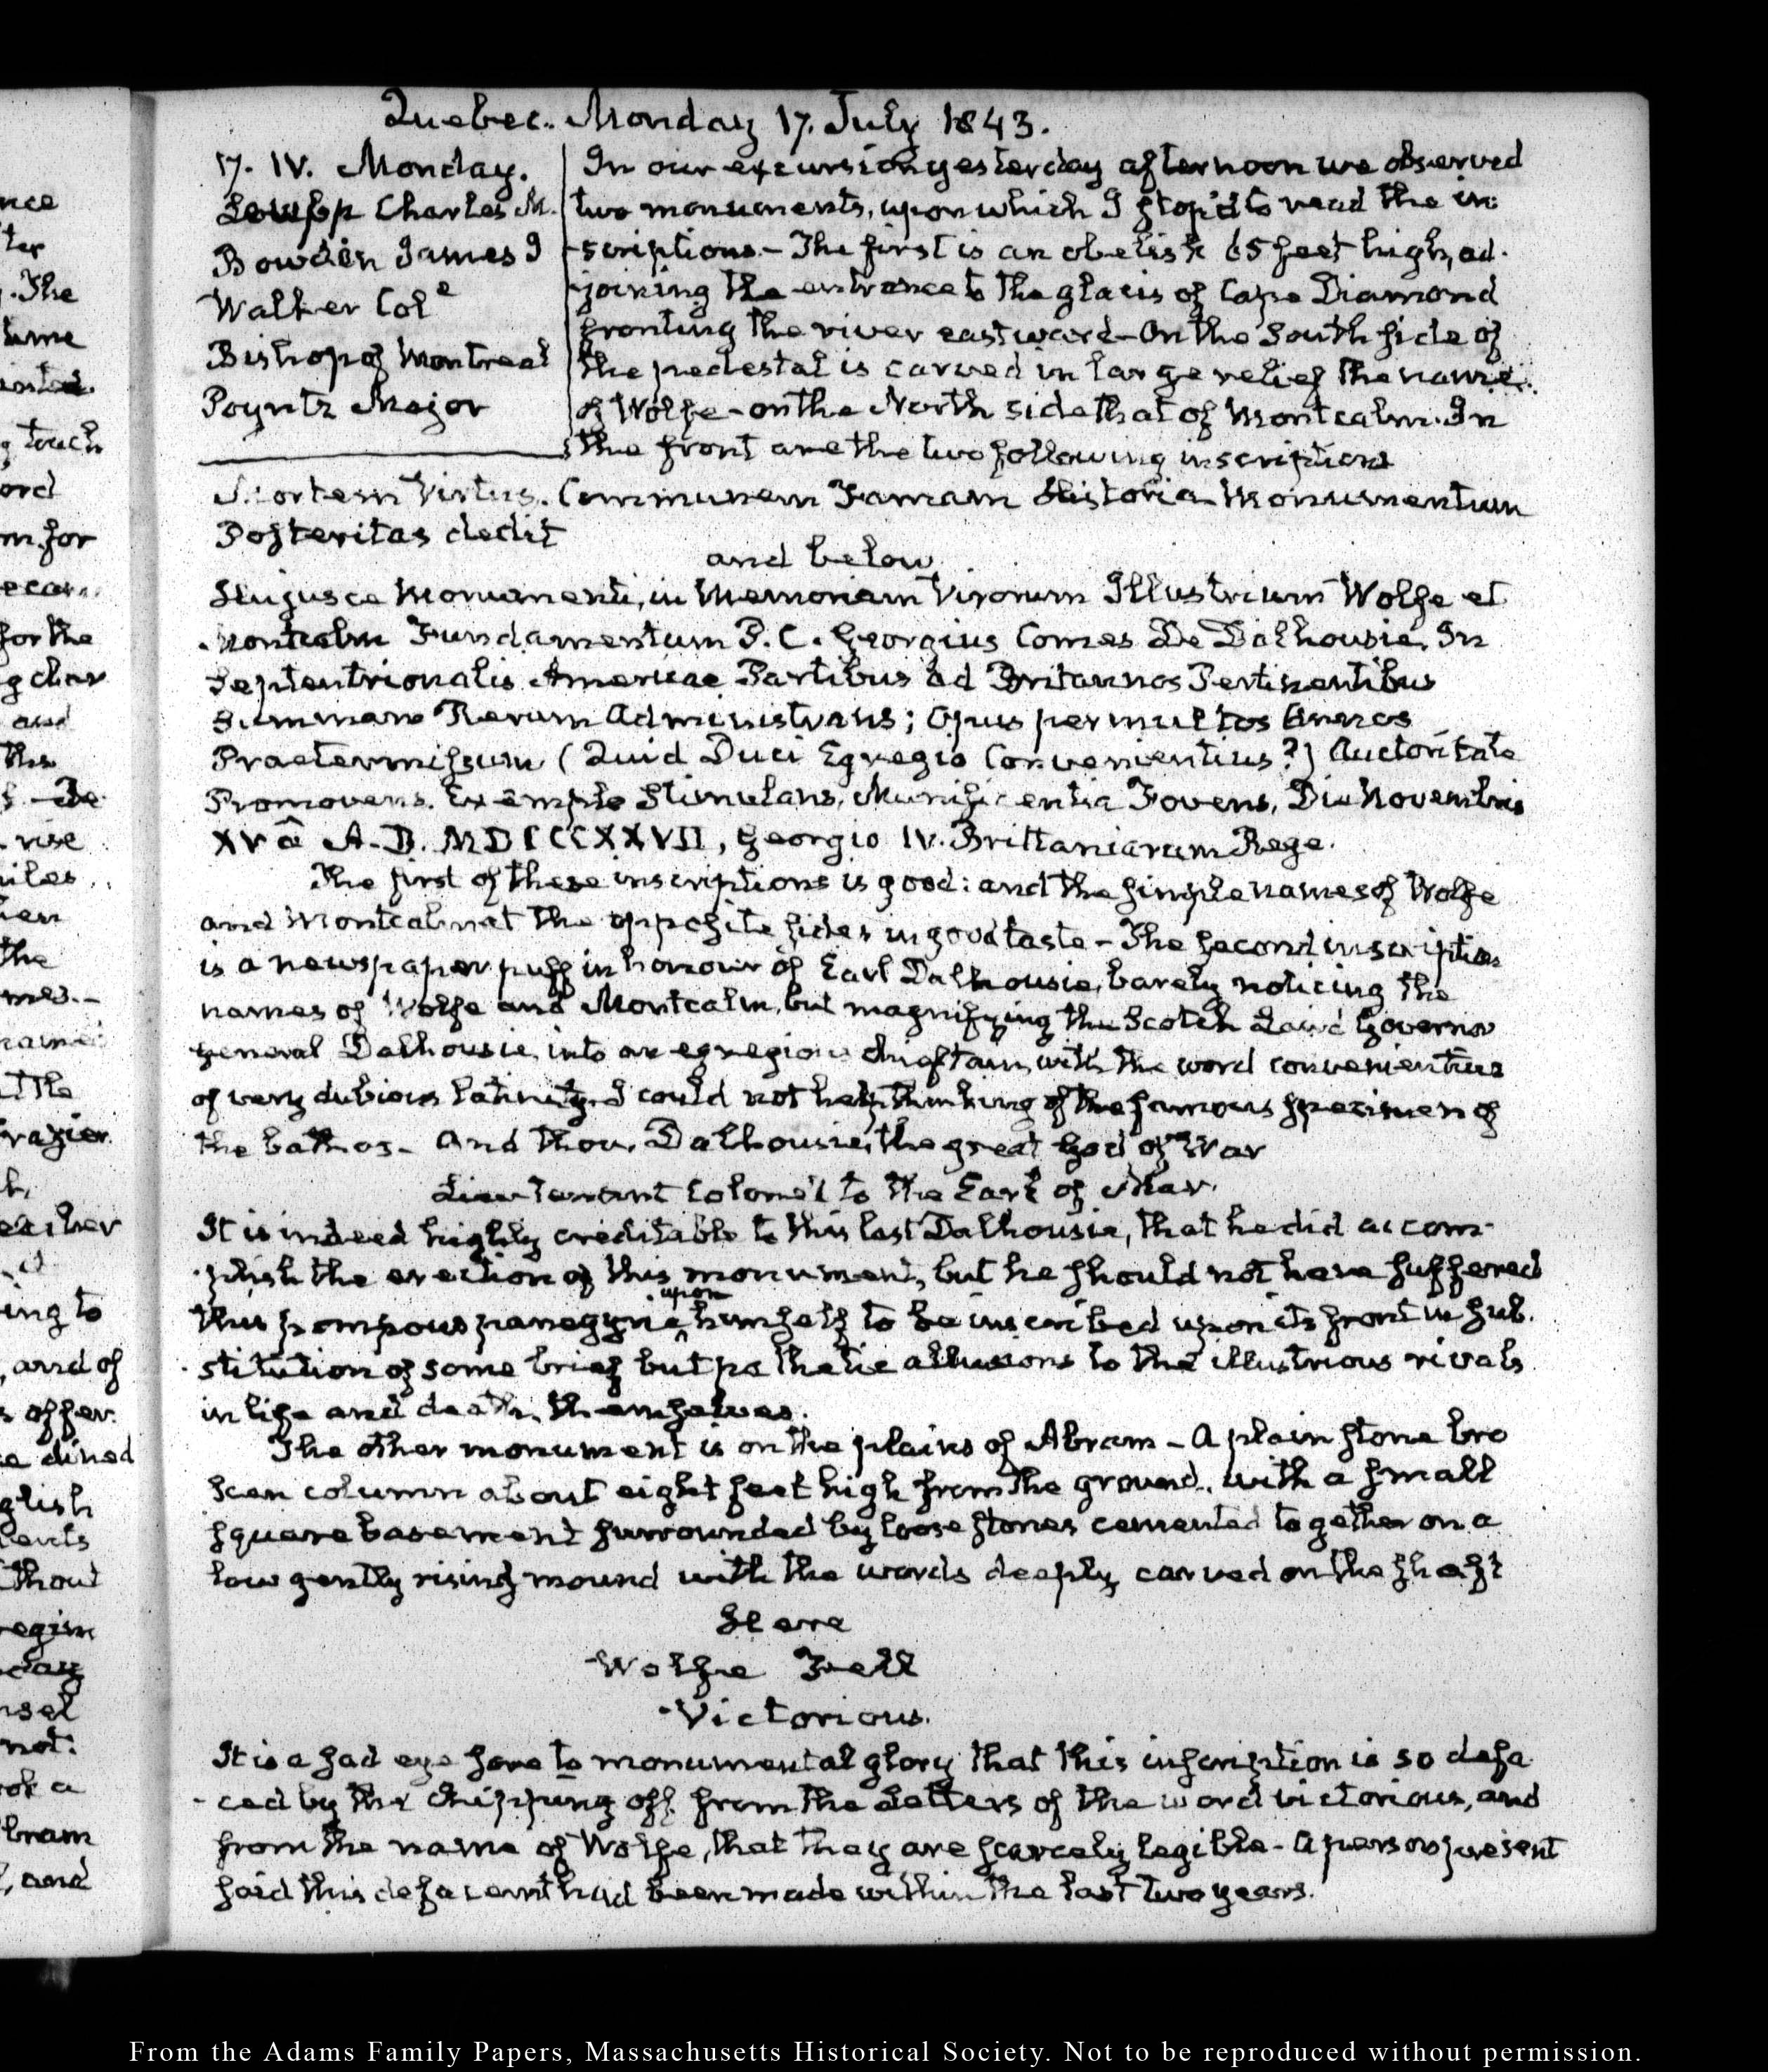 Quebec. Monday 17. July 1843.
17. IV. Monday.
Leupp Charles M.
Bowden James I
Walker Colᵉ
Bishop of Montreal
Poyntz Major
In our excursion yesterday afternoon we observed
two monuments, upon which I stop'd to read the in
-scriptions - The first is an obelisk 65 feet high, ad-
-joining the entrance to the glacis of Cape Diamond
fronting the river eastward - On the South side of
the pedestal is carved in large relief the name
of Wolfe - on the North side that of Montcalm. In
the front are the two following inscriptions
Mortem Virtus. Communem Famam Historia Monumentum
Posteritas dedit
and below
Hujusce Monumenti, in Memoriam Virorum Illustrium Wolfe et
Montcalm Fundamentum P. C. Georgius Comes De Dalhousie, In
Septentrionalis Americae Partibus ad Britannos Pertinentibus
Summam Rerum Administrans; Opus per multos Annos
Praetermissum (Quid Duci Egregio Convenientius?) Auctoritate
Promovens, Exemplo Stimulans, Munificentia Fovens, Die Novembris
XVâ A. D. MDCCCXXVII, Georgio IV. Brittaniarum Rege.
The first of these inscriptions is good: and the simple names of Wolfe
and Montcalm at the opposite sides in good taste - The second inscription
is a newspaper puff in honour of Earl Dalhousie, barely noticing the
names of Wolfe and Montcalm, but magnifying the Scotch Laird Governor
general Dalhousie, into an egregious chieftain, with the word convenientius
of very dubious latinity. I could not help thinking of the famous specimen of
the bathos - And thou, Dalhousie, the great God of War
Lieutenant Colonel to the Earl of Mar.
It is indeed highly creditable to this last Dalhousie, that he did accom-
-plish the erection of this monument, but he should not have suffered
this pompous panegyric upon himself to be inscribed upon its front in sub-
-stitution of some brief but pathetic allusions to the illustrious rivals
in life and death, themselves.
The other monument is on the plains of Abram - A plain stone bro
ken column about eight feet high from the ground, with a small
square basement surrounded by loose stones cemented together on a
low gently rising mound with the words deeply carved on the shaft
Here
Wolfe Fell
Victorious.
It is a sad eye sore to monumental glory that this inscription is so defa
-ced by the chipping off from the Letters of the word victorious, and
from the name of Wolfe, that they are scarcely legible - A person present
said this defacement had been made within the last two years.
From the Adams Family Papers, Massachusetts Historical Society. Not to be reproduced without permission.